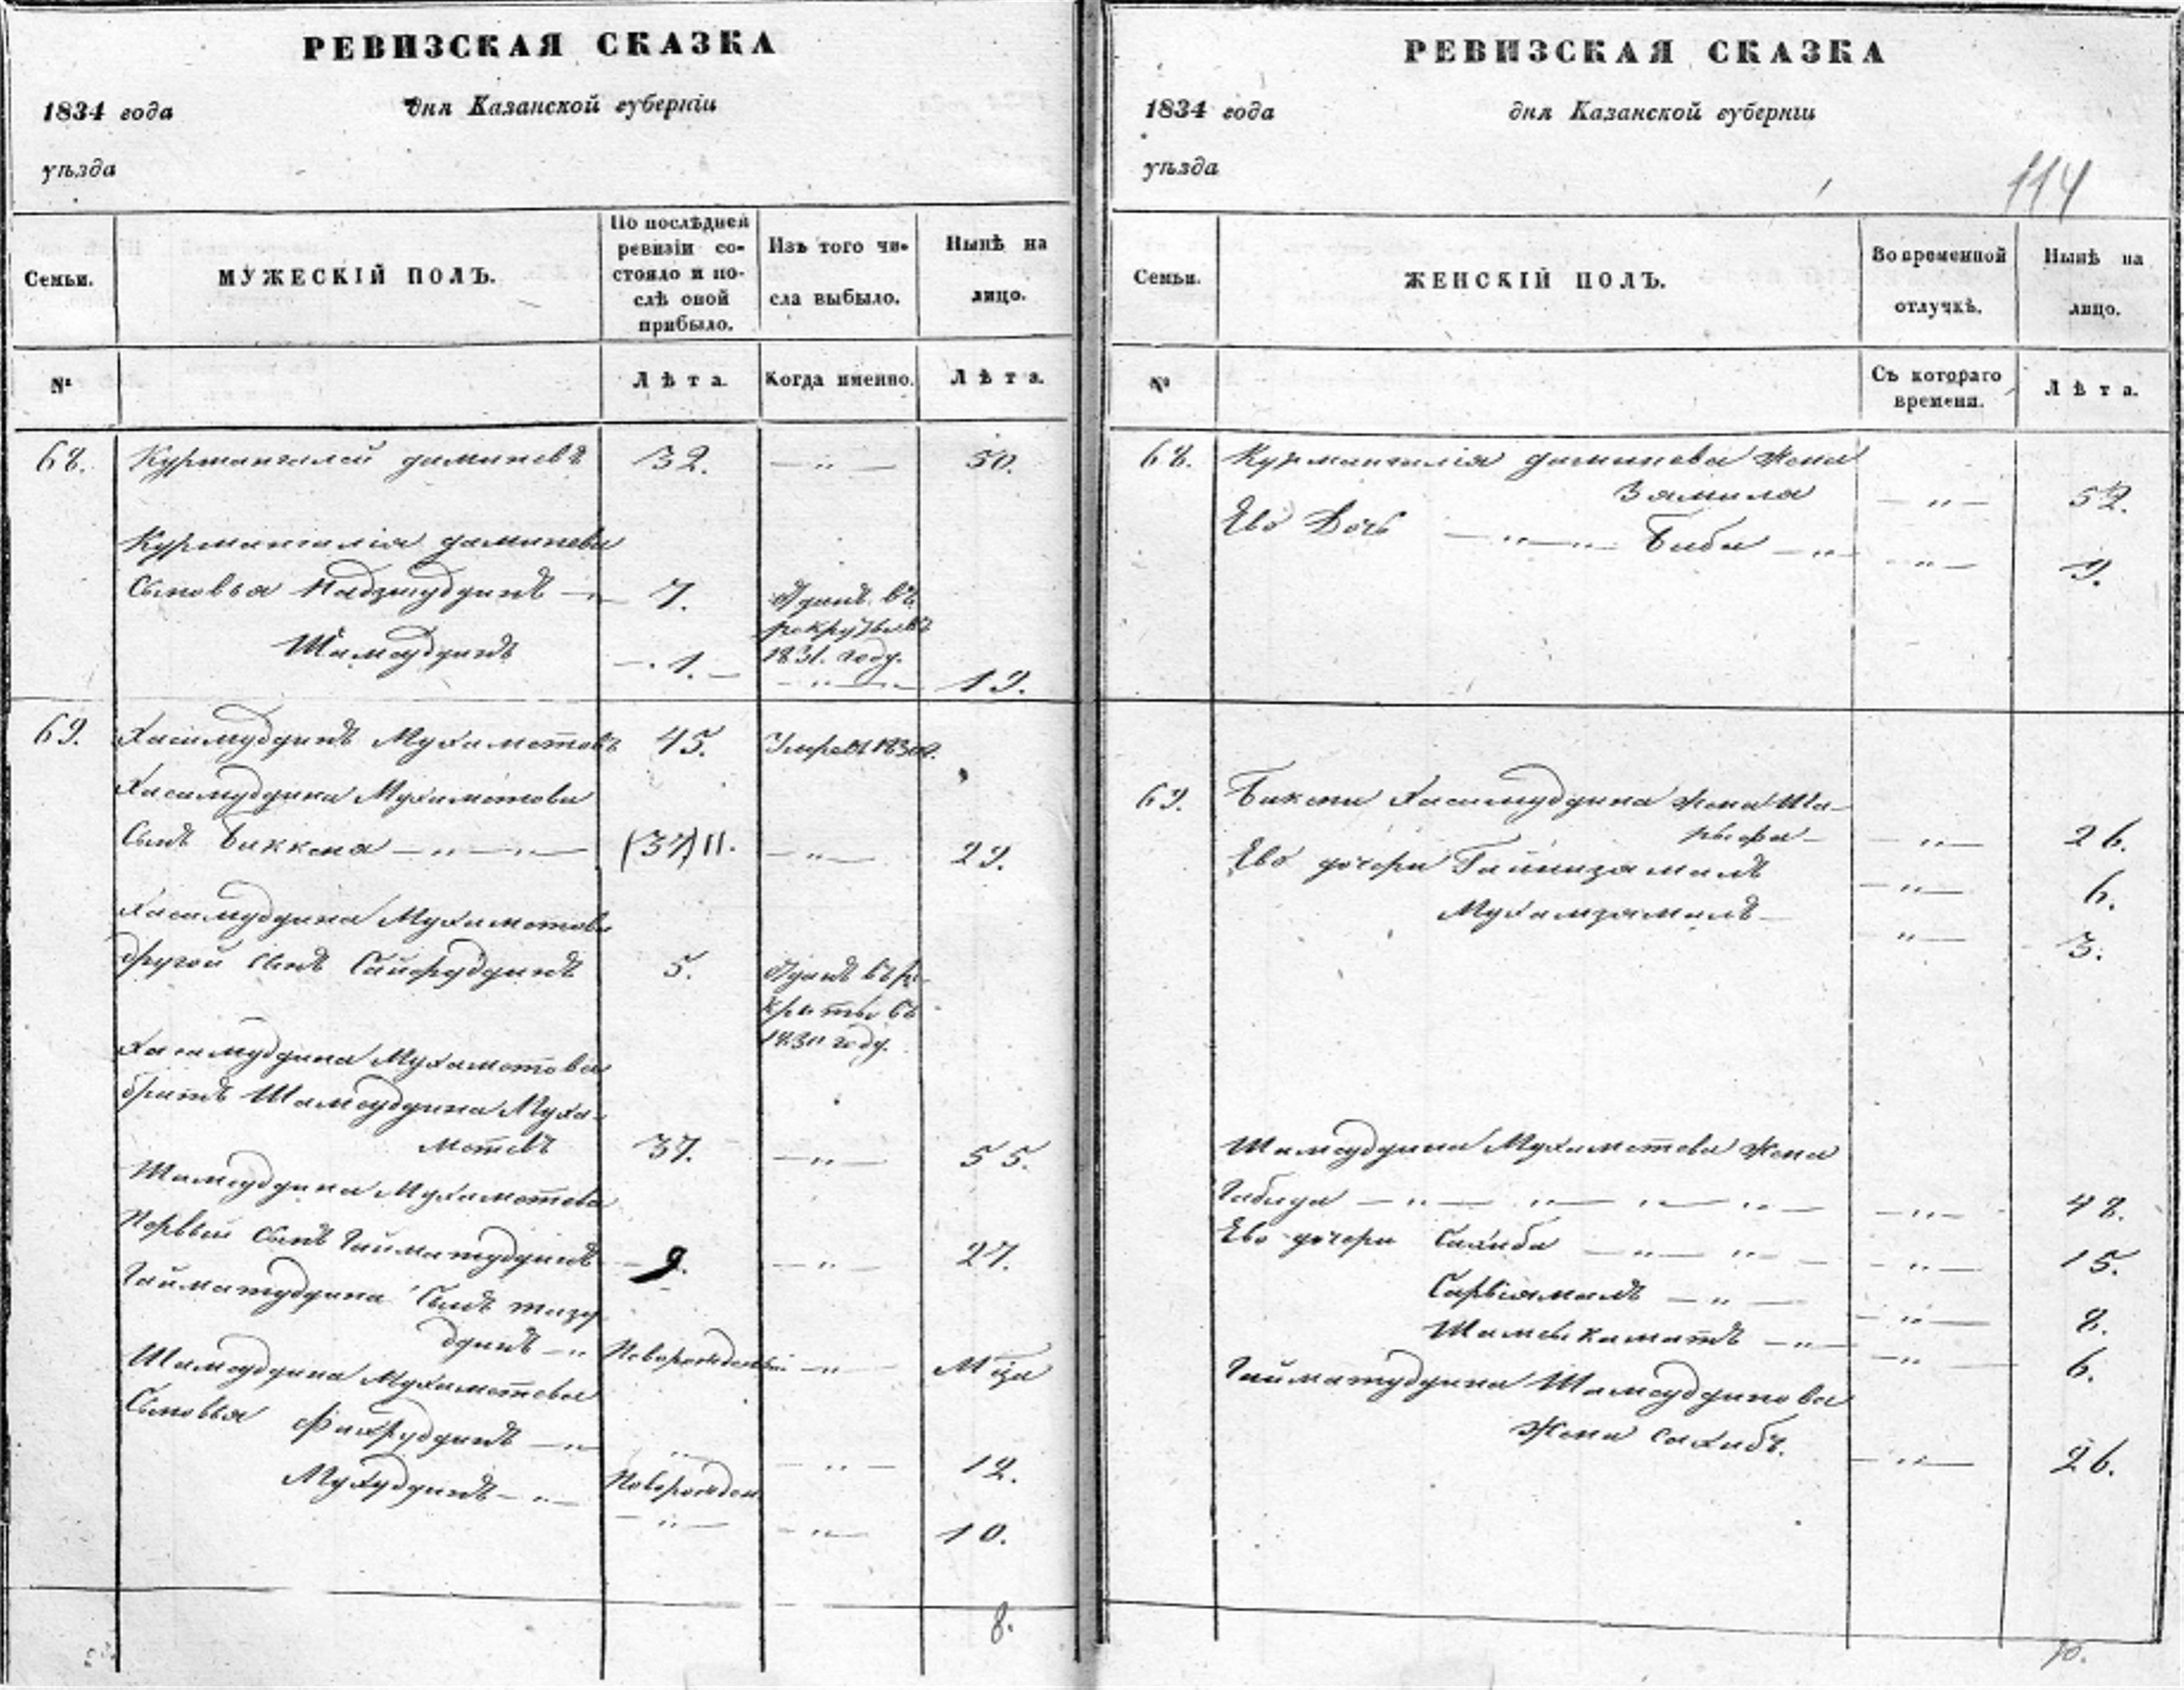 РЕВИЗСКАЯ СКАЗКА
1834 года дня Казанской губерніи
уѣзда
Семьи.
МУЖЕСКІЙ ПОЛЪ.
По послѣдней ревизіи состояло и послѣ оной прибыло.
Изъ того числа выбыло.
Нынѣ на лицо.
№
Лѣта.
Когда именно.
Лѣта.
68. Курмангалей Даминевъ 32. —„— 50.
Курмангалія Даминева
Сыновья Надзмуддинъ — 7. Отданъ въ
рекруты въ
Шамсуддинъ —.1.— 1831. году.
—„— 19.
69. Хасамуддинъ Мухаметовъ 45. Умре въ 1830
Хасамуддина Мухаметова
Сынъ Биккеня —„—„— (37) 11. —„— 29.
Хасамуддина Мухаметова
другой сынъ Сайфуддинъ 5. Отданъ въ ре-
круты въ
1830 году.
Хасамуддина Мухаметова
братъ Шамсуддина Муха-
метевъ 37. —„— 55.
Шамсуддина Мухаметова
Первый сынъ Гайматуддинъ — 9. —„— 27.
Гайматуддина Сынъ тазе
динъ —„ Новорожденный —„—
Шамсуддина Мухаметева
Сыновья Фахруддинъ —„ „ —„— 12.
Мухуддинъ —„— Новорожден.
—„— —„— 10.
8.
РЕВИЗСКАЯ СКАЗКА
1834 года дня Казанской губерніи
уѣзда
114
Семьи.
ЖЕНСКІЙ ПОЛЪ.
Во временной отлучкѣ.
Нынѣ на лицо.
№
Съ котораго времени.
Лѣта.
68. Курмангалія Даминева жена
Зямиля —„— 52.
Ево Дочь —„—„— Биби —„— —„— 9.
69. Биккени Хасамуддина жена Ша-
рыфа — —„— 26.
Ево дочери Гайнизамалъ —„— 6.
Мухамзамалъ — „— 3.
Шамсуддина Мухаметева жена
Габида —„— „— „— „— —„— 48.
Ево дочери Сахиба —„— „— —„— 15.
Сарвіямалъ —„— —„— 8.
Шамсыкаматъ —„— —„— 6.
Гайматуддина Шамсуддинова
жена Сахибъ. —„— 26.
10.